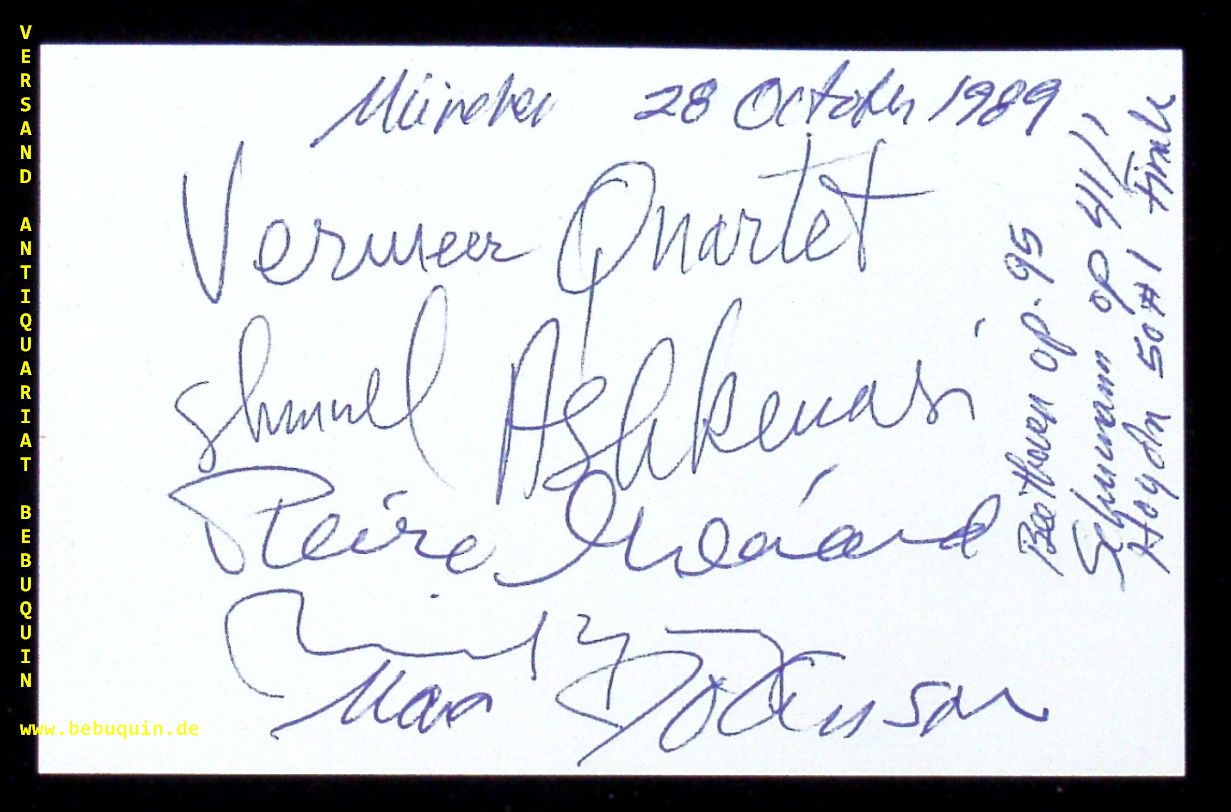 München 28 October 1989
Vermeer Quartet
Shmuel Ashkenasi
Pierre Menard
Marc Johnson
Beethoven op. 95
Schumann op 41/1
Haydn 50 #1 Finale
VERSAND ANTIQUARIAT BEBUQUIN
www.bebuquin.de